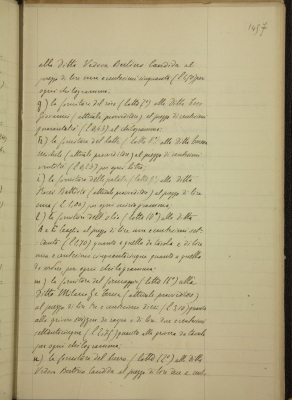 1457
alla Ditta Vedova Bertino Candida al
prezzo di lire una e centesimi cinquanta (£ 1,50) per
ogni chilogramma;
g) la fornitura del riso (lotto 7°) alla Ditta
Giovanni (attuale provveditore) al prezzo di centesimi
al chilogramma;
h) la fornitura del latte (lotto 8°) alla Ditta
Michele (attuale provveditore) al prezzo di centesimi
per ogni litro;
i) la fornitura delle patate (lotto 9°) alla Ditta
Battista (attuale provveditore) al prezzo di lire
una (£ 1,00) per ogni miriagramma;
l) la fornitura dell'olio (lotto 10°) alla Ditta
al prezzo di lire una e centesimi set-
tanta (£ 1,70) quanto a quello da tavola e di lire
una e centesimi cinquantacinque quanto a quello
da ardere per ogni chilogramma;
m) la fornitura del formaggio (lotto 11°) alla
Ditta Milano (attuale provveditore)
al prezzo di lire due e centesimi dieci (£ 2,10) quanto
alla e di lire una e centesimi
ottantacinque (£ 1,85) quanto alla da tavola
per ogni chilogramma;
n) la fornitura del burro (lotto 12°) alla Ditta
Vedova Bertino Candida al prezzo di lire due e cente-